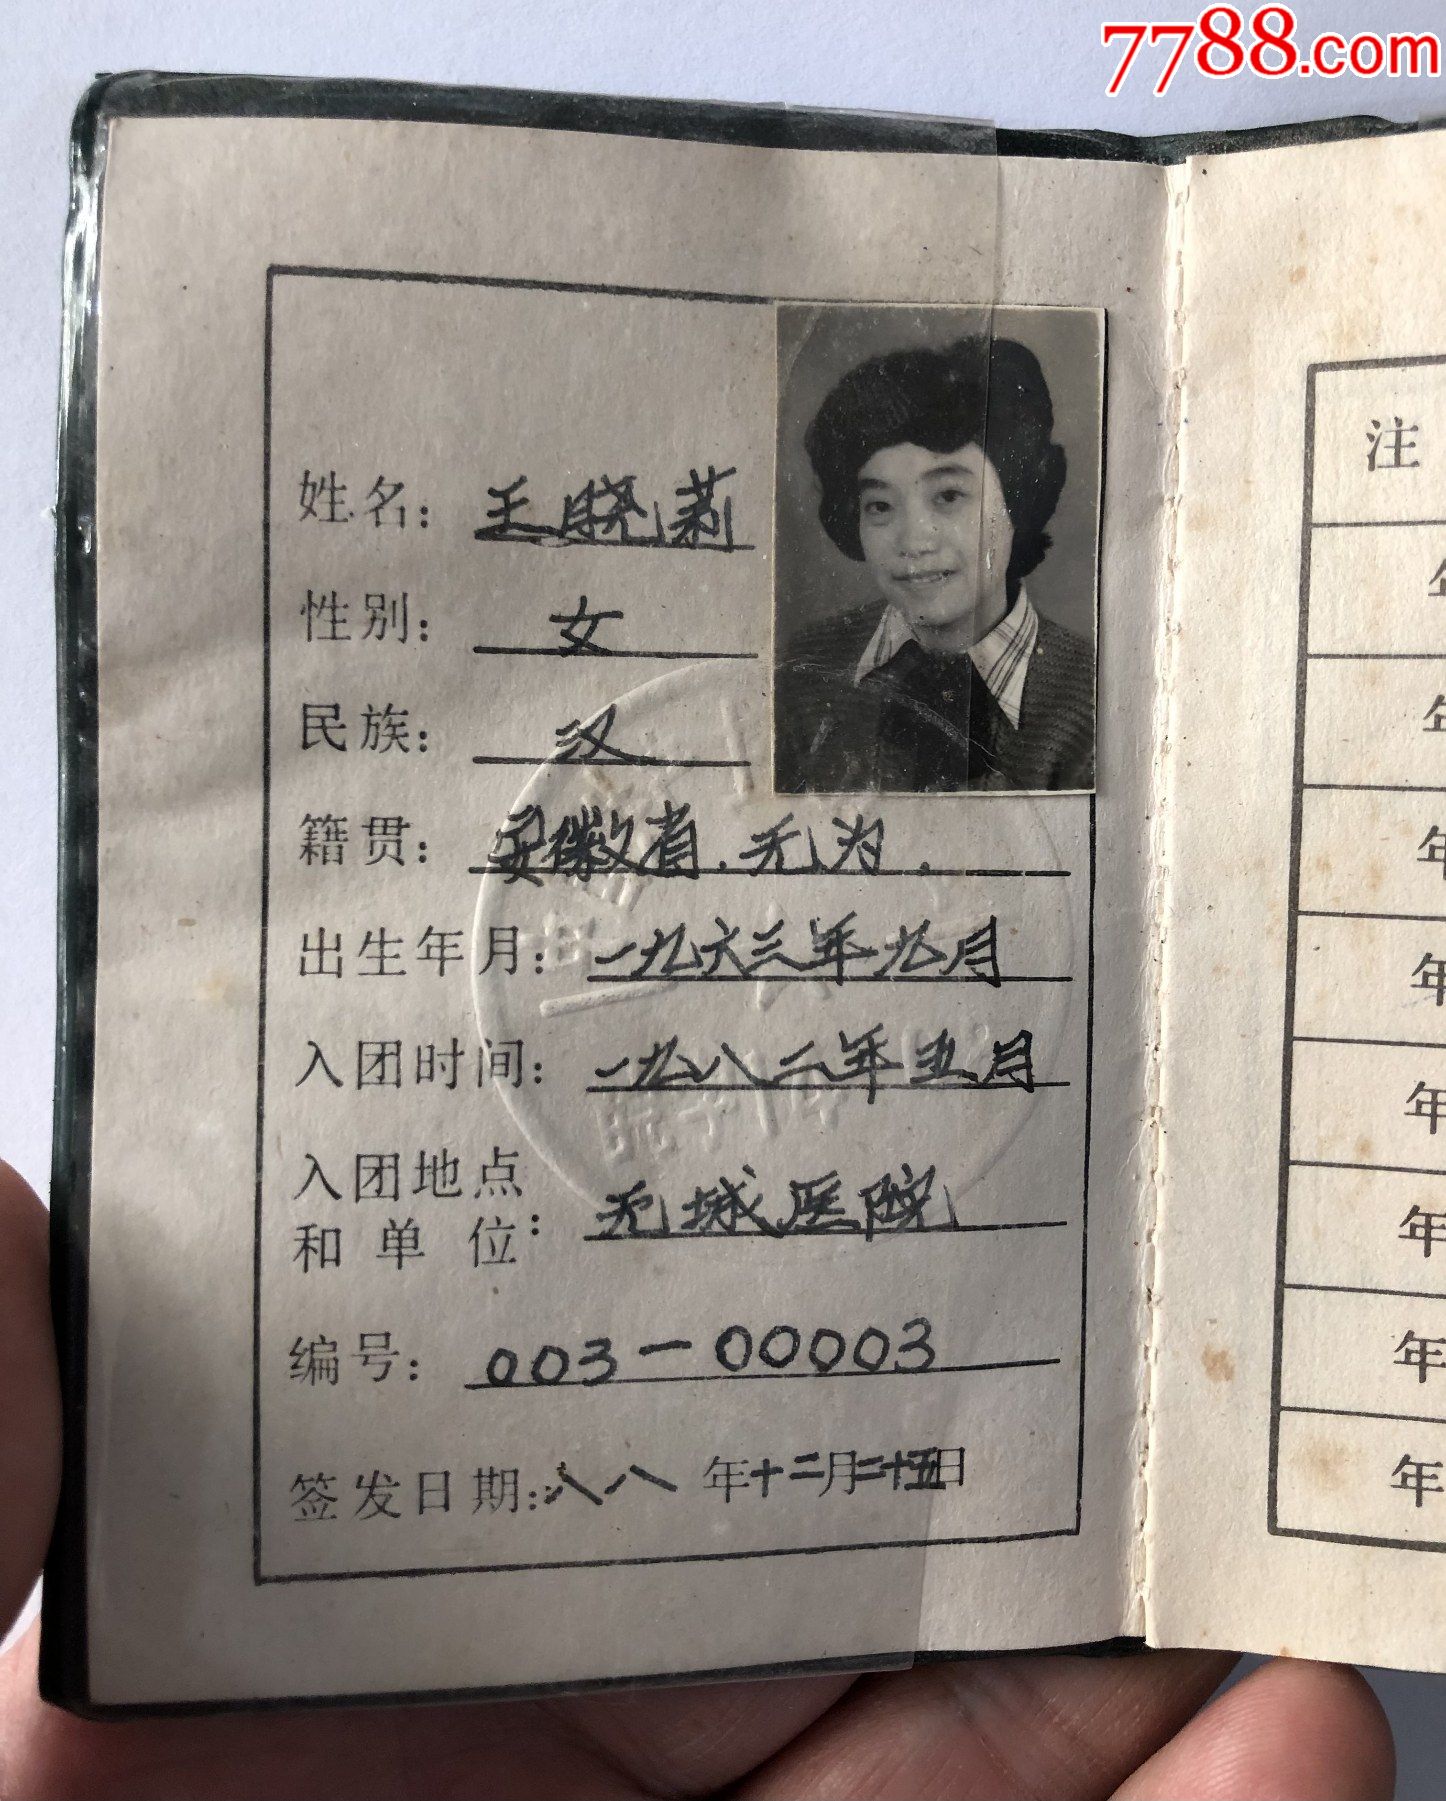 7788.com
姓名：王晓莉
性别：女
民族：汉
籍贯：安徽省．无为．
出生年月：一九六三年九月
入团时间：一九八二年五月
入团地点
和单位：无城医院
编号：003—00003
签发日期：八八年十二月二十五日
注
年
年
年
年
年
年
年
年